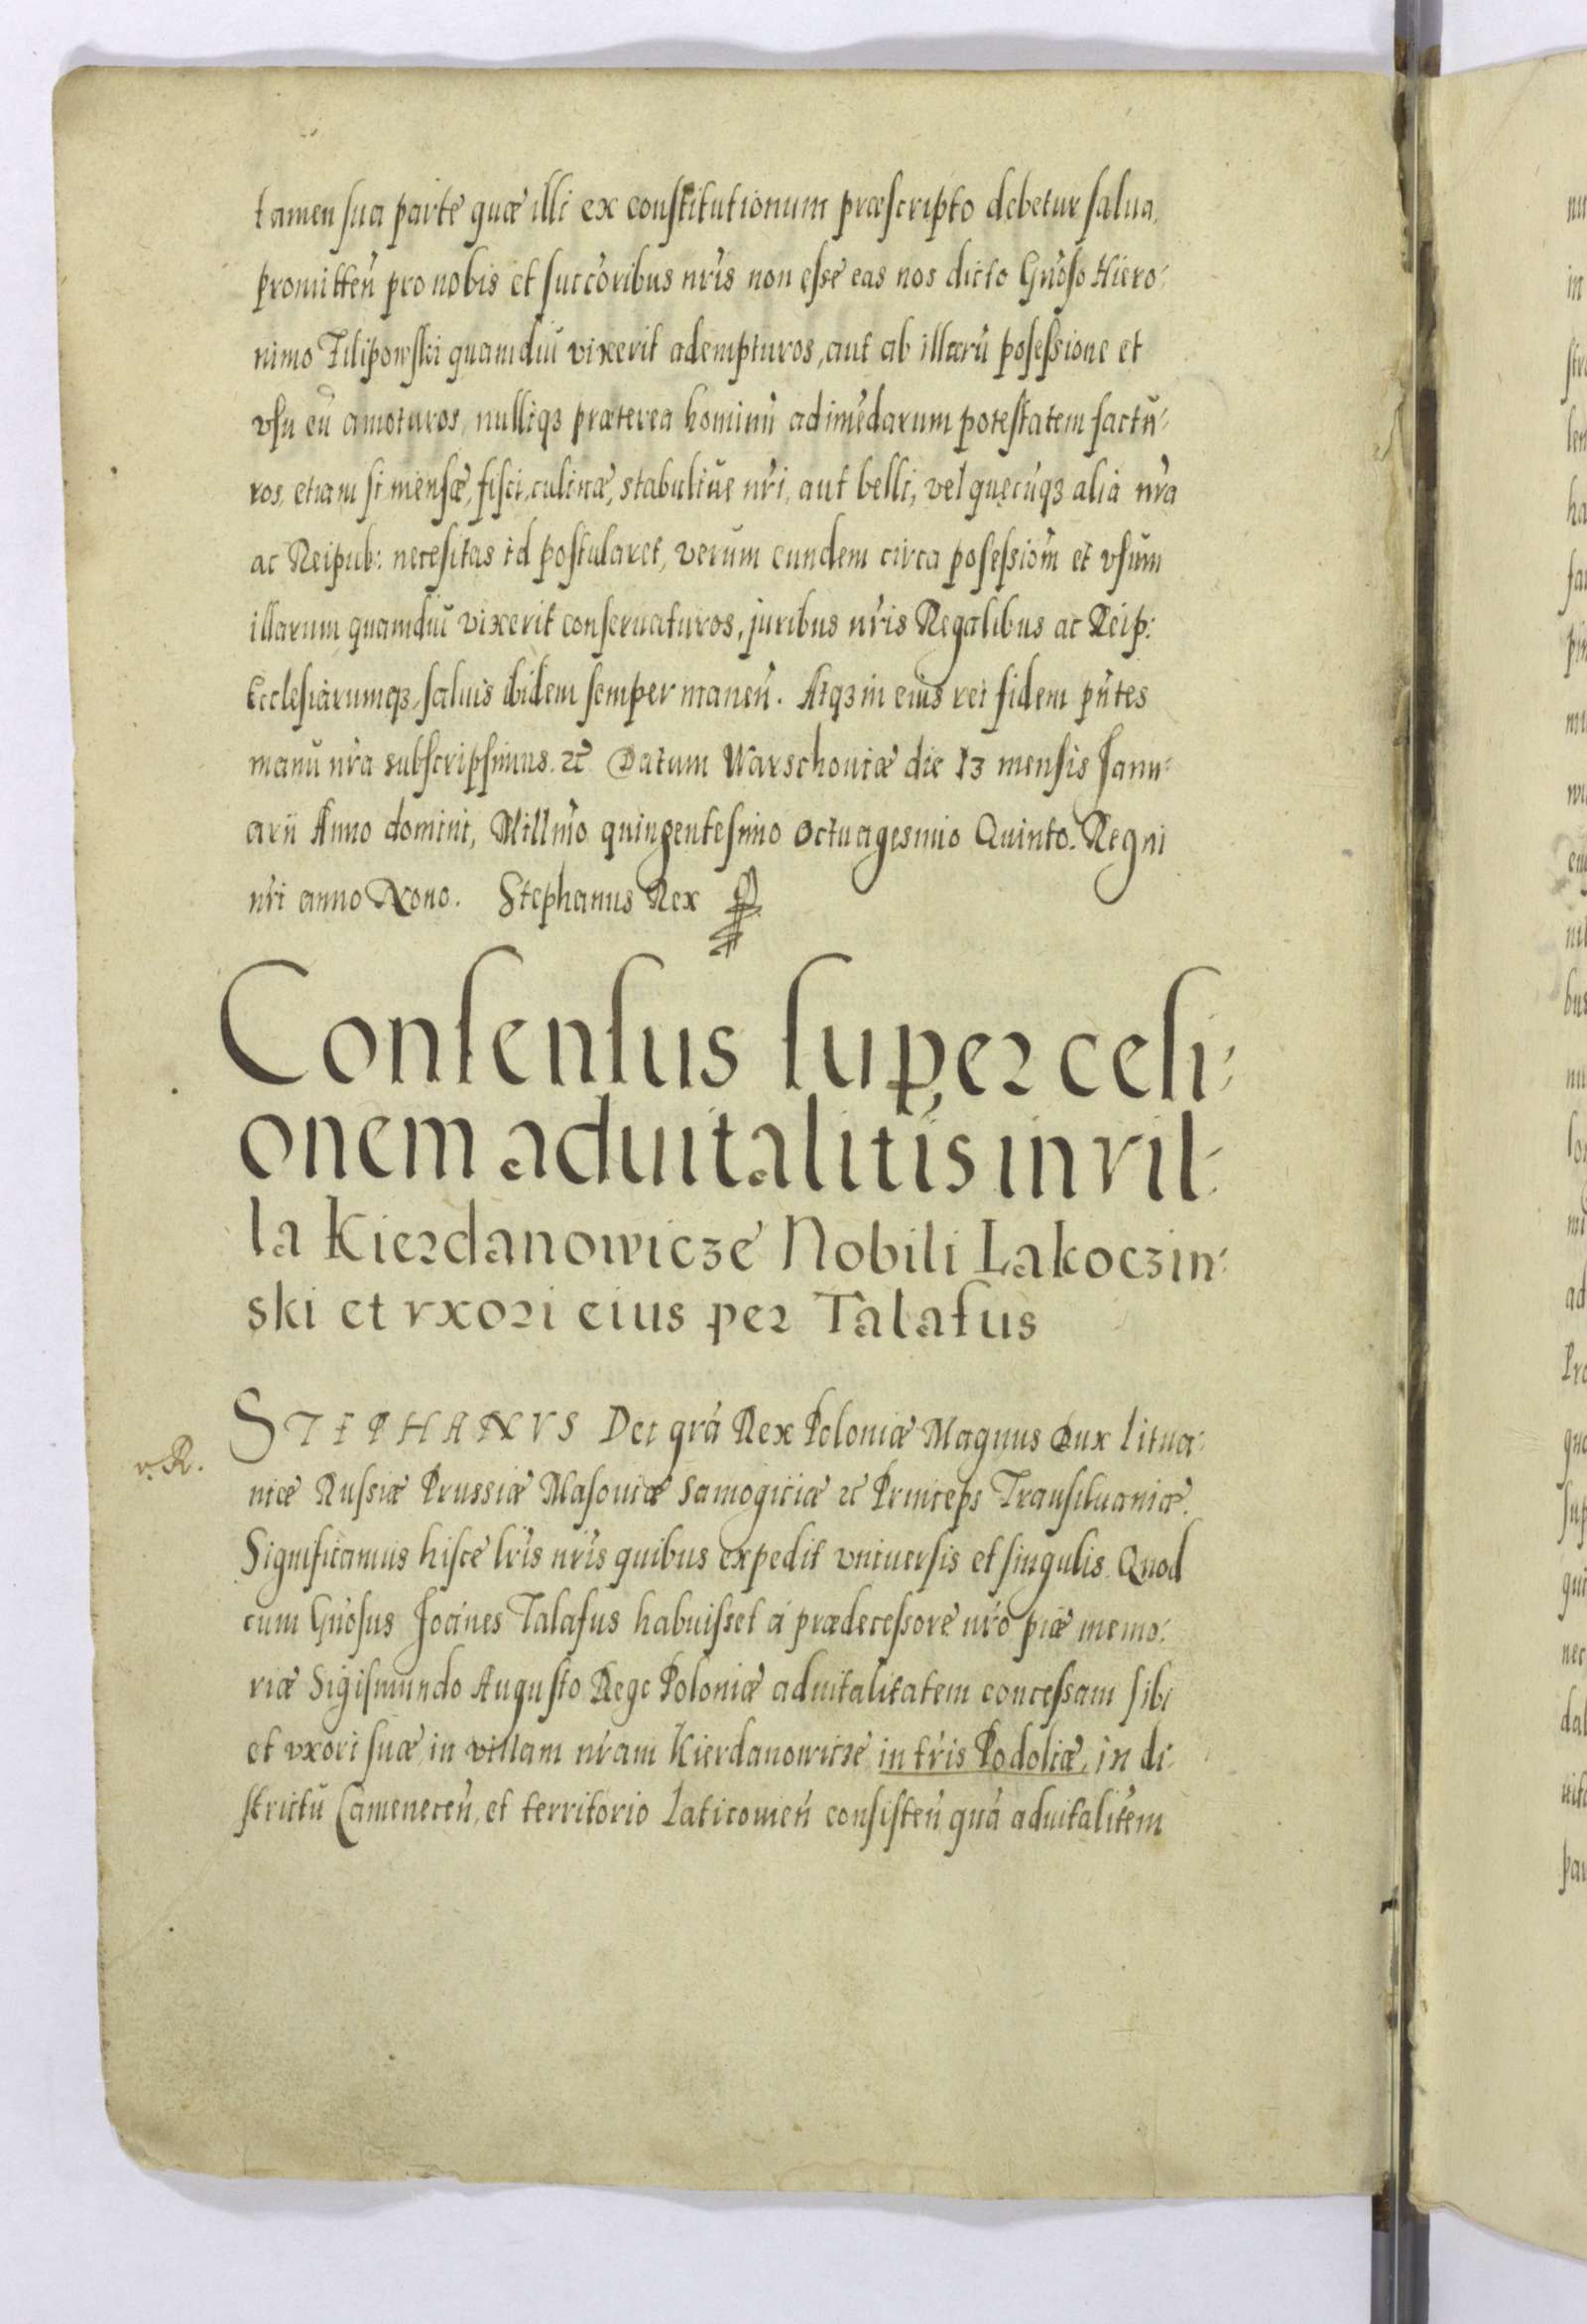 tamen sua parte quæ illi ex constitutionum præscripto debetur salua,
promitteñ pro nobis et succoribus nris non esse eas nos dicto Gnoso Hiero-
nimo Filipowski quamdiu vixerit adempturos, aut ab illarū posessione et
vsu eū amoturos, nulliqз præterea hominū adimēdarum potestatem factū-
ros, etiam si mensæ, fisci, culinæ, stabuliue nri, aut belli, vel quęcūqз alia nra
ac Reipub: necesitas id postularet, verum eundem circa posessiom et vsum
illarum quamdiu vixerit conseruaturos, juribus nris Regalibus ac Reip:
Ecclesiarumqз saluis ibidem semper maneñ. Atqз in eius rei fidem pñtes
manu nra subscripsimus. etc Datum Warschouiæ die 13 mensis Janu-
arii Anno domini, Millmo quingentesimo octuagesimo Quinto. Regni
nri anno Nono. Stephanus Rex
Consensus super cesi-
onem aduitalitis in vil-
la Kierdanowicze Nobili Lakoczin-
ski et vxori eius per Talafus
v. R.
STEPHANVS Dei gra Rex Poloniæ Magnus Dux Litua-
niæ Russiæ Prussiæ Masouiæ Samogitiæ etc Princeps Transiluaniæ.
Significamus hisce lris nris quibus expedit vniuersis et singulis. Quod
cum Gnosus Joanes Talafus habuisset á prædecessore nro piæ memo-
riæ Sigismundo Augusto Rege Poloniæ aduitalitatem concessam sibi
et vxori suæ in villam nram Kierdanowicze in tris Podoliæ, in di-
strictu Cameneceñ, et territorio Laticouieñ consisteñ quá aduitalitem